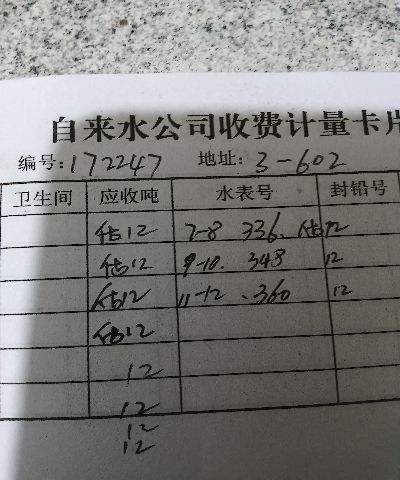 自来水公司收费计量卡片
编号:172247 地址:3-602
卫生间 应收吨 水表号 封铅号
估12 7-8 336. 估12
估12 9-10. 348 12
估12 11-12 .360 12
估12
12
12
12
12